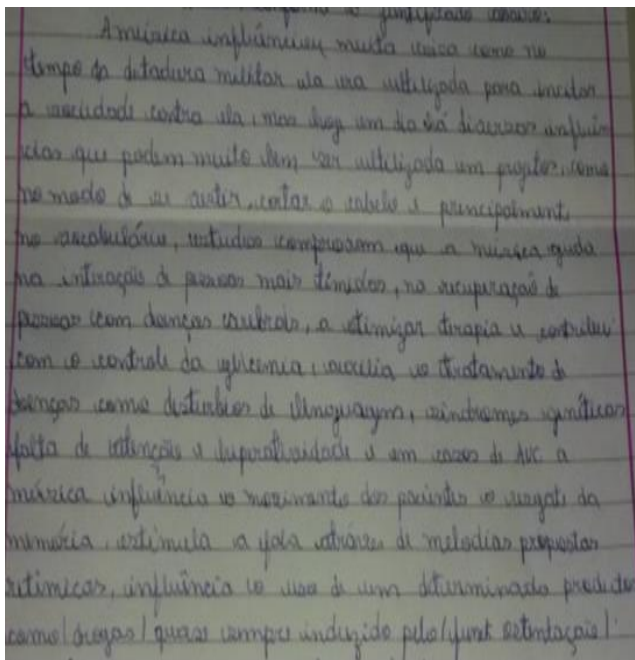 justificado
A música influênciou muita coisa como no
tempo da ditadura militar ela era ultilizada para incitar
a sociedade contra ela, mas hoje um dia há diversas influên
cias que podem muito bem ser ultilizada um projeto, como
no modo de se vestir, cortar o cabelo e principalment
no vascabulário, estudios comprovam que a música ajuda
na interação de pessoas mais tímidas, na recuperação de
pessoas com doenças cerebrais, a otimizar terapia e contribui
com o controle da glicemia, auxilia no tratamento de
doenças como distúrbios de linguagem, síndromes genéticas
falta de intenção e hiperatividade e em casos de AVC a
música influência no movimento dos pacientes o resgate da
memória, estimula a fala através de melodias propostas
ritimicas, influência no uso de um determinado produto
como drogas quase sempre induzido pelo (funk ostentação)